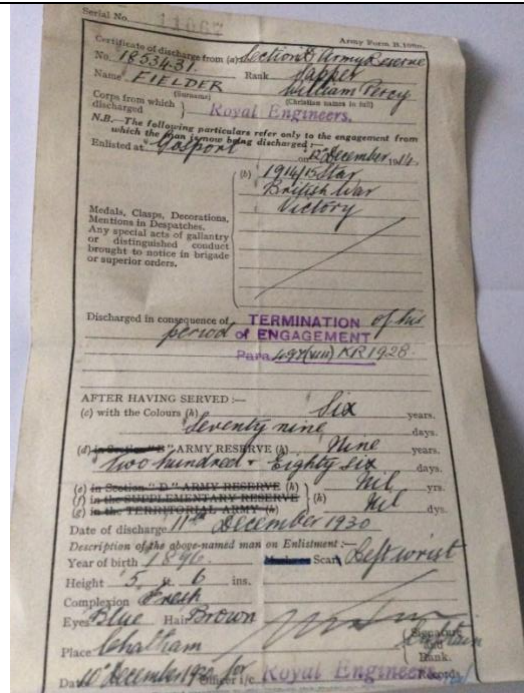 Serial No. 11067
Army Form B.108
Certificate of discharge from (a) Section D Army Reserve
No. 1853431 Rank Sapper
Name FIELDER William Percy
(Surname) (Christian names in full)
Corps from which discharged } Royal Engineers.
N.B.—The following particulars refer only to the engagement from
which the man is now being discharged :—
Enlisted at Gosport on 12 December 1914
(b) 1914/15 Star
British War
Victory
Medals, Clasps, Decorations,
Mentions in Despatches.
Any special acts of gallantry
or distinguished conduct
brought to notice in brigade
or superior orders.
Discharged in consequence of TERMINATION of his
period of ENGAGEMENT
Para 492(viii) KR 1928.
AFTER HAVING SERVED :—
(c) with the Colours (h) Six years.
Seventy nine days.
(d) in Section "B" ARMY RESERVE (h) Nine years.
two hundred & Eighty six days.
(e) in Section "D" ARMY RESERVE (h)
(f) in the SUPPLEMENTARY RESERVE } (h) Nil yrs.
(g) in the TERRITORIAL ARMY (h) Nil dys.
Date of discharge 11th December 1930
Description of the above-named man on Enlistment :—
Year of birth 1896. Scar Left wrist
Height 5 ft. 6 ins.
Complexion Fresh
Eyes Blue Hair Brown
Signature and Rank.
Place Chatham Captain
Date 10th December 1930 for Officer i/c. Royal Engineers Records